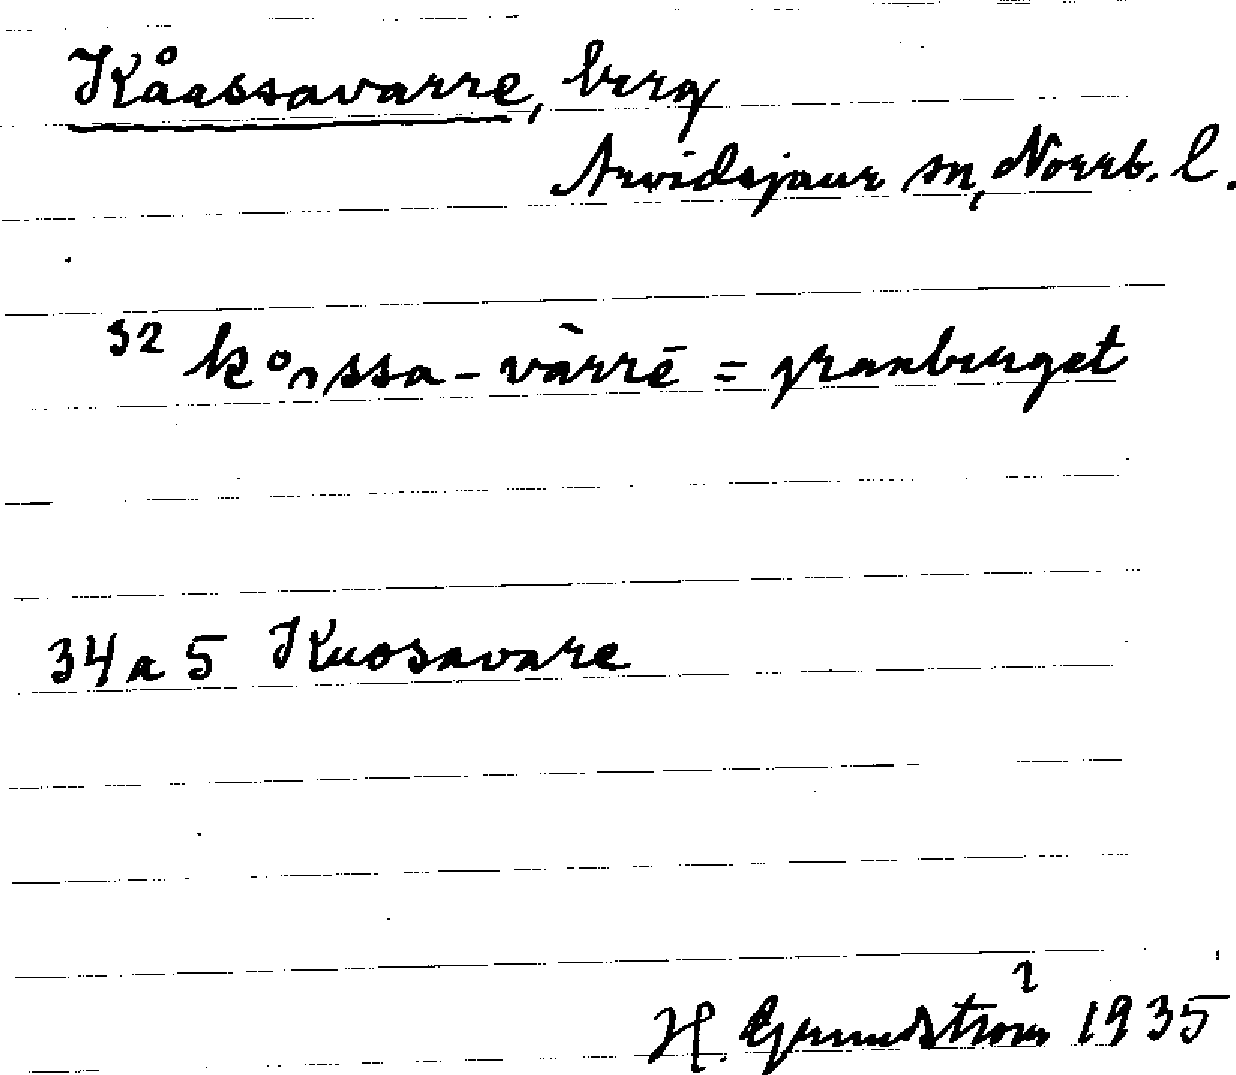 Kåassavarre, berg
Arvidsjaur sn, Norrb. l.
32 kºssa-vàrrē = granberget
34 a 5 Kuosavare
H. Grundström 1935